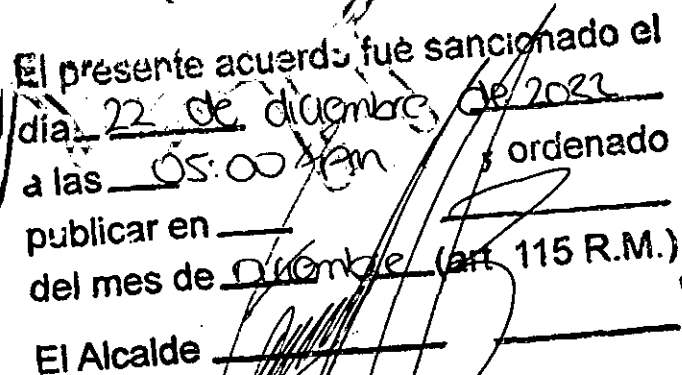 El presente acuerdo fué sancionado el
día 22 de diciembre de 2022
a las 05:00 pm y ordenado
publicar en
del mes de Diciembre (art. 115 R.M.)
El Alcalde